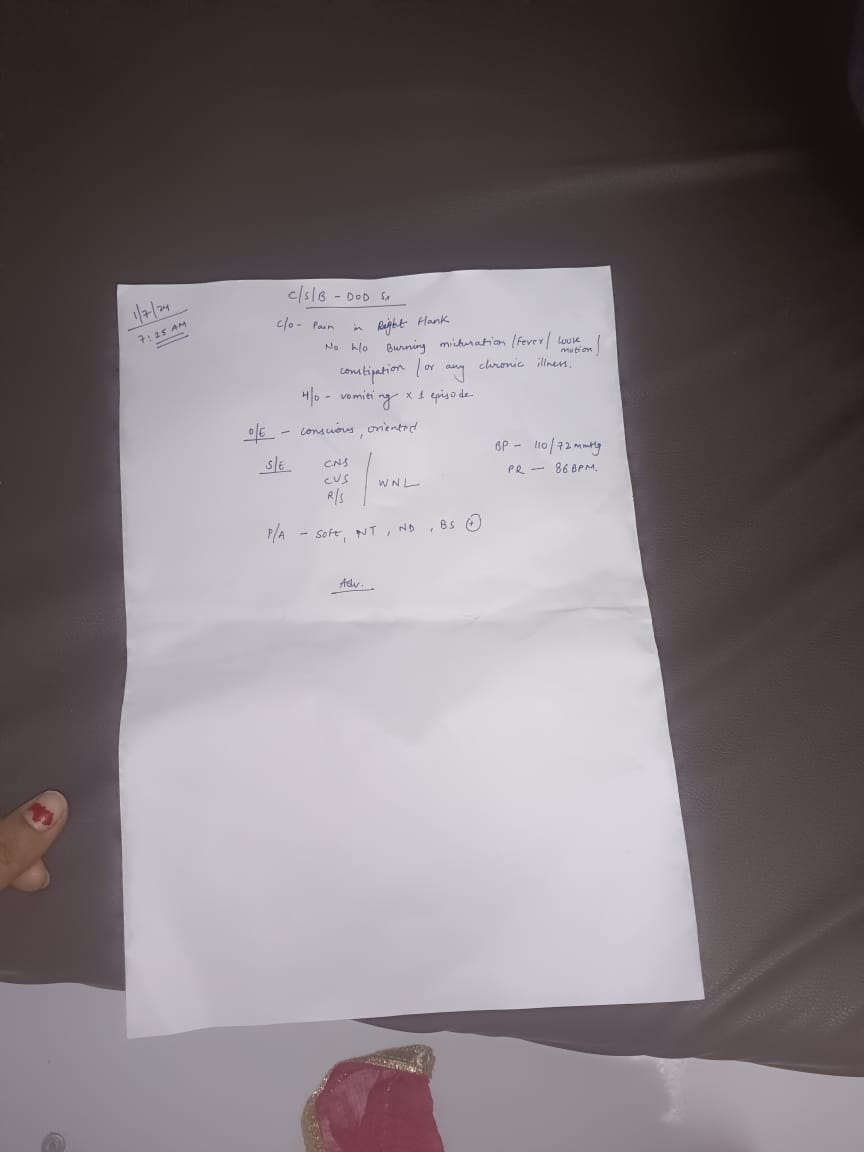 1/7/24
7:25 AM
C/S/B - DOD Sx
C/o - Pain in Right Flank
No h/o Burning micturation / Fever / loose motion /
constipation / or any chronic illness.
H/o - vomiting x 1 episode.
O/E - conscious, oriented
BP - 110/72 mmHg
S/E CNS
PR - 86 BPM.
CVS
WNL
R/S
P/A - Soft, NT, ND, BS (+)
Adv.